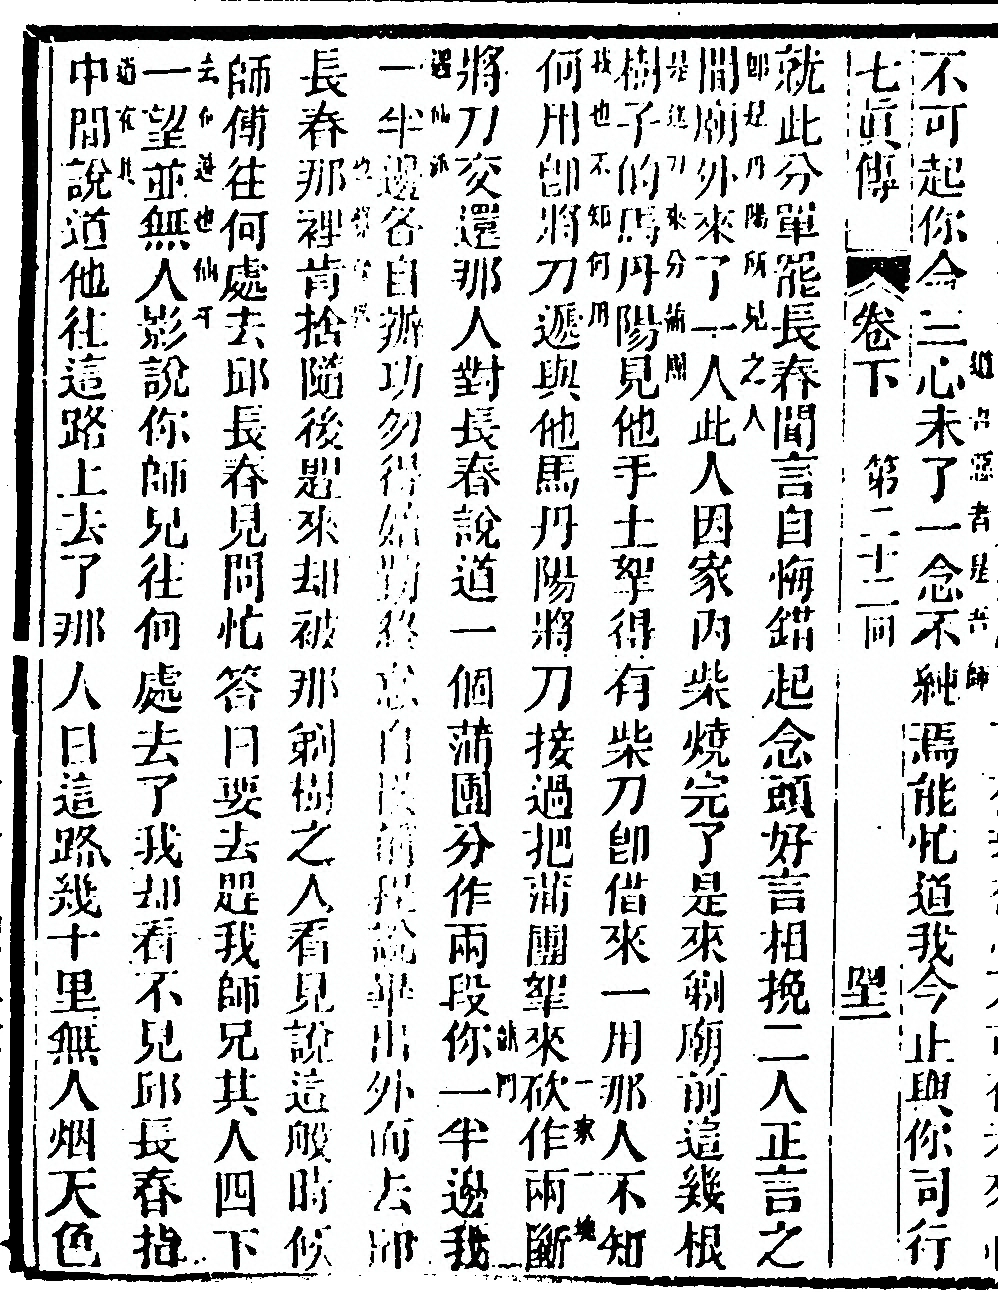 不可起你今三心未了一念不純焉能忙道我今止與你司行
道者惡者是吾師
七眞傳 卷下 第二十二回 四十一
就此分單罷長春聞言自悔錯起念頭好言相挽二人正言之
間廟外來了一人此人因家內柴燒完了是來剔廟前這幾根
卽起丹陽所見之人
樹子的馬丹陽見他手上拏得有柴刀卽借來一用那人不知
是這刀來分蒲團
何用卽將刀遞與他馬丹陽將刀接過把蒲團拏來砍作兩斷
我也不知何用 一家一塊
將刀交還那人對長春說道一個蒲團分作兩段你一半邊我
一半邊各自辦功勿得始勤終怠自誤前程說畢出外而去邱
長春那裡肯捨隨後趕來却被那剔樹之人看見說這般時候
師傅往何處去邱長春見問忙答曰要去趕我師兄其人四下
一望並無人影說你師兄往何處去了我却看不見邱長春指
中間說道他往這路上去了那人曰這路幾十里無人烟天色